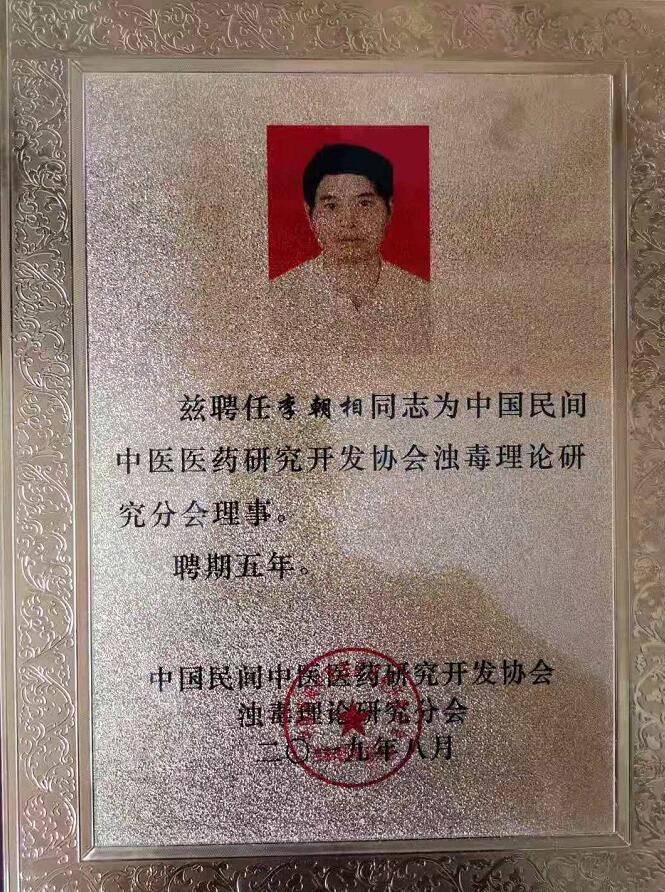 兹聘任李朝相同志为中国民间
中医医药研究开发协会浊毒理论研
究分会理事。
聘期五年。
中国民间中医医药研究开发协会
浊毒理论研究分会
二〇一九年八月